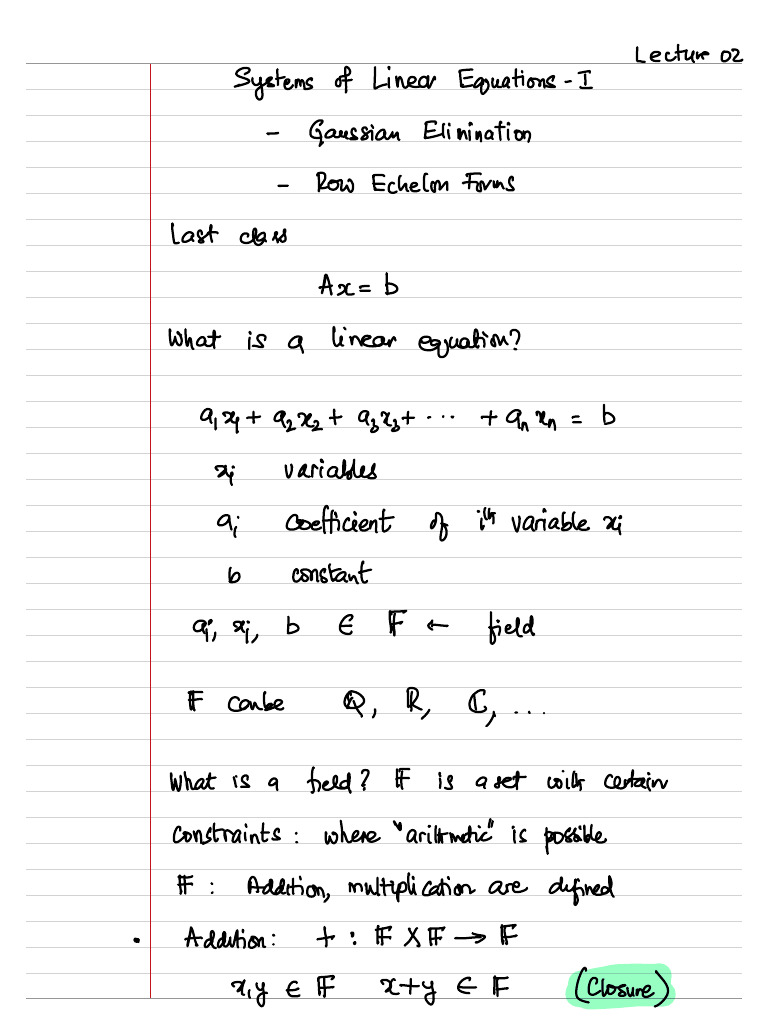 Lecture 02
Systems of Linear Equations - I
- Gaussian Elimination
- Row Echelon Forms
Last class
Ax = b
What is a linear equation?
a₁x₁ + a₂x₂ + a₃x₃ + ··· + aₙxₙ = b
xᵢ variables
aᵢ coefficient of iᵗʰ variable xᵢ
b constant
aᵢ, xᵢ, b ∈ 𝔽 ← field
𝔽 can be ℚ, ℝ, ℂ, ...
What is a field? 𝔽 is a set with certain
constraints : where "arithmetic" is possible
𝔽 : Addition, multiplication are defined
• Addition: + : 𝔽 × 𝔽 → 𝔽
x, y ∈ 𝔽 x+y ∈ 𝔽 (Closure)